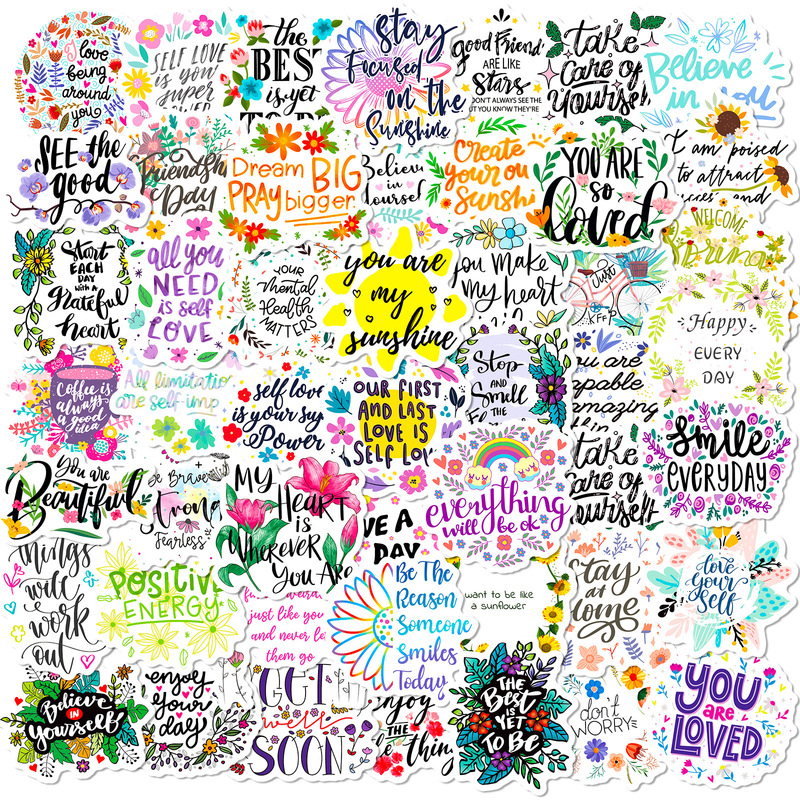 I
love
being
around
you
SELF LOVE
IS YOUR
SUPER
the
BEST
is yet
stay
Focused
on the
Sunshine
good Friend
ARE LIKE
Stars
DON'T ALWAYS SEE THE
UT YOU KNOW THEY'RE
take
care of
yourself
Believe
in
SEE the
good
Friendship
Day
Dream BIG
PRAY bigger
Believe
in
yourself
Create
your own
Sunshi
YOU ARE
so
Loved
I am poised
to attract
and
WELCOME
Start
EACH
DAY
with a
Grateful
heart
all you
NEED
is self
LOVE
YOUR
Mental
Health
MATTERS
you are
my
sunshine
you make
my heart
Just
Happy
EVERY
DAY
Coffee is
always
a good
idea
All limitatio
are self-imp
self love
is your sup
Power
OUR FIRST
AND LAST
LOVE IS
SELF LOV
Stop
AND
Smell
THE
ou are
apable
amazing
Smile
EVERYDAY
You are
Beautiful
Be Brave
Strong
Fearless
MY
HEART
is
Wherever
You Are
VE A
DAY
everything
will be ok
take
care of
yourself
things
will
work
out
POSITIVE
ENERGY
just like you
and never le
them go
Be The
Reason
Someone
Smiles
Today
want to be like
a sunflower
stay
at
home
love
your
self
Believe
IN
Yourself
enjoy
your
day
GET
well
SOON
njoy
THE
e thing
THE
Best
is
YET
TO BE
don't
WORRY
YOU
are
LOVED